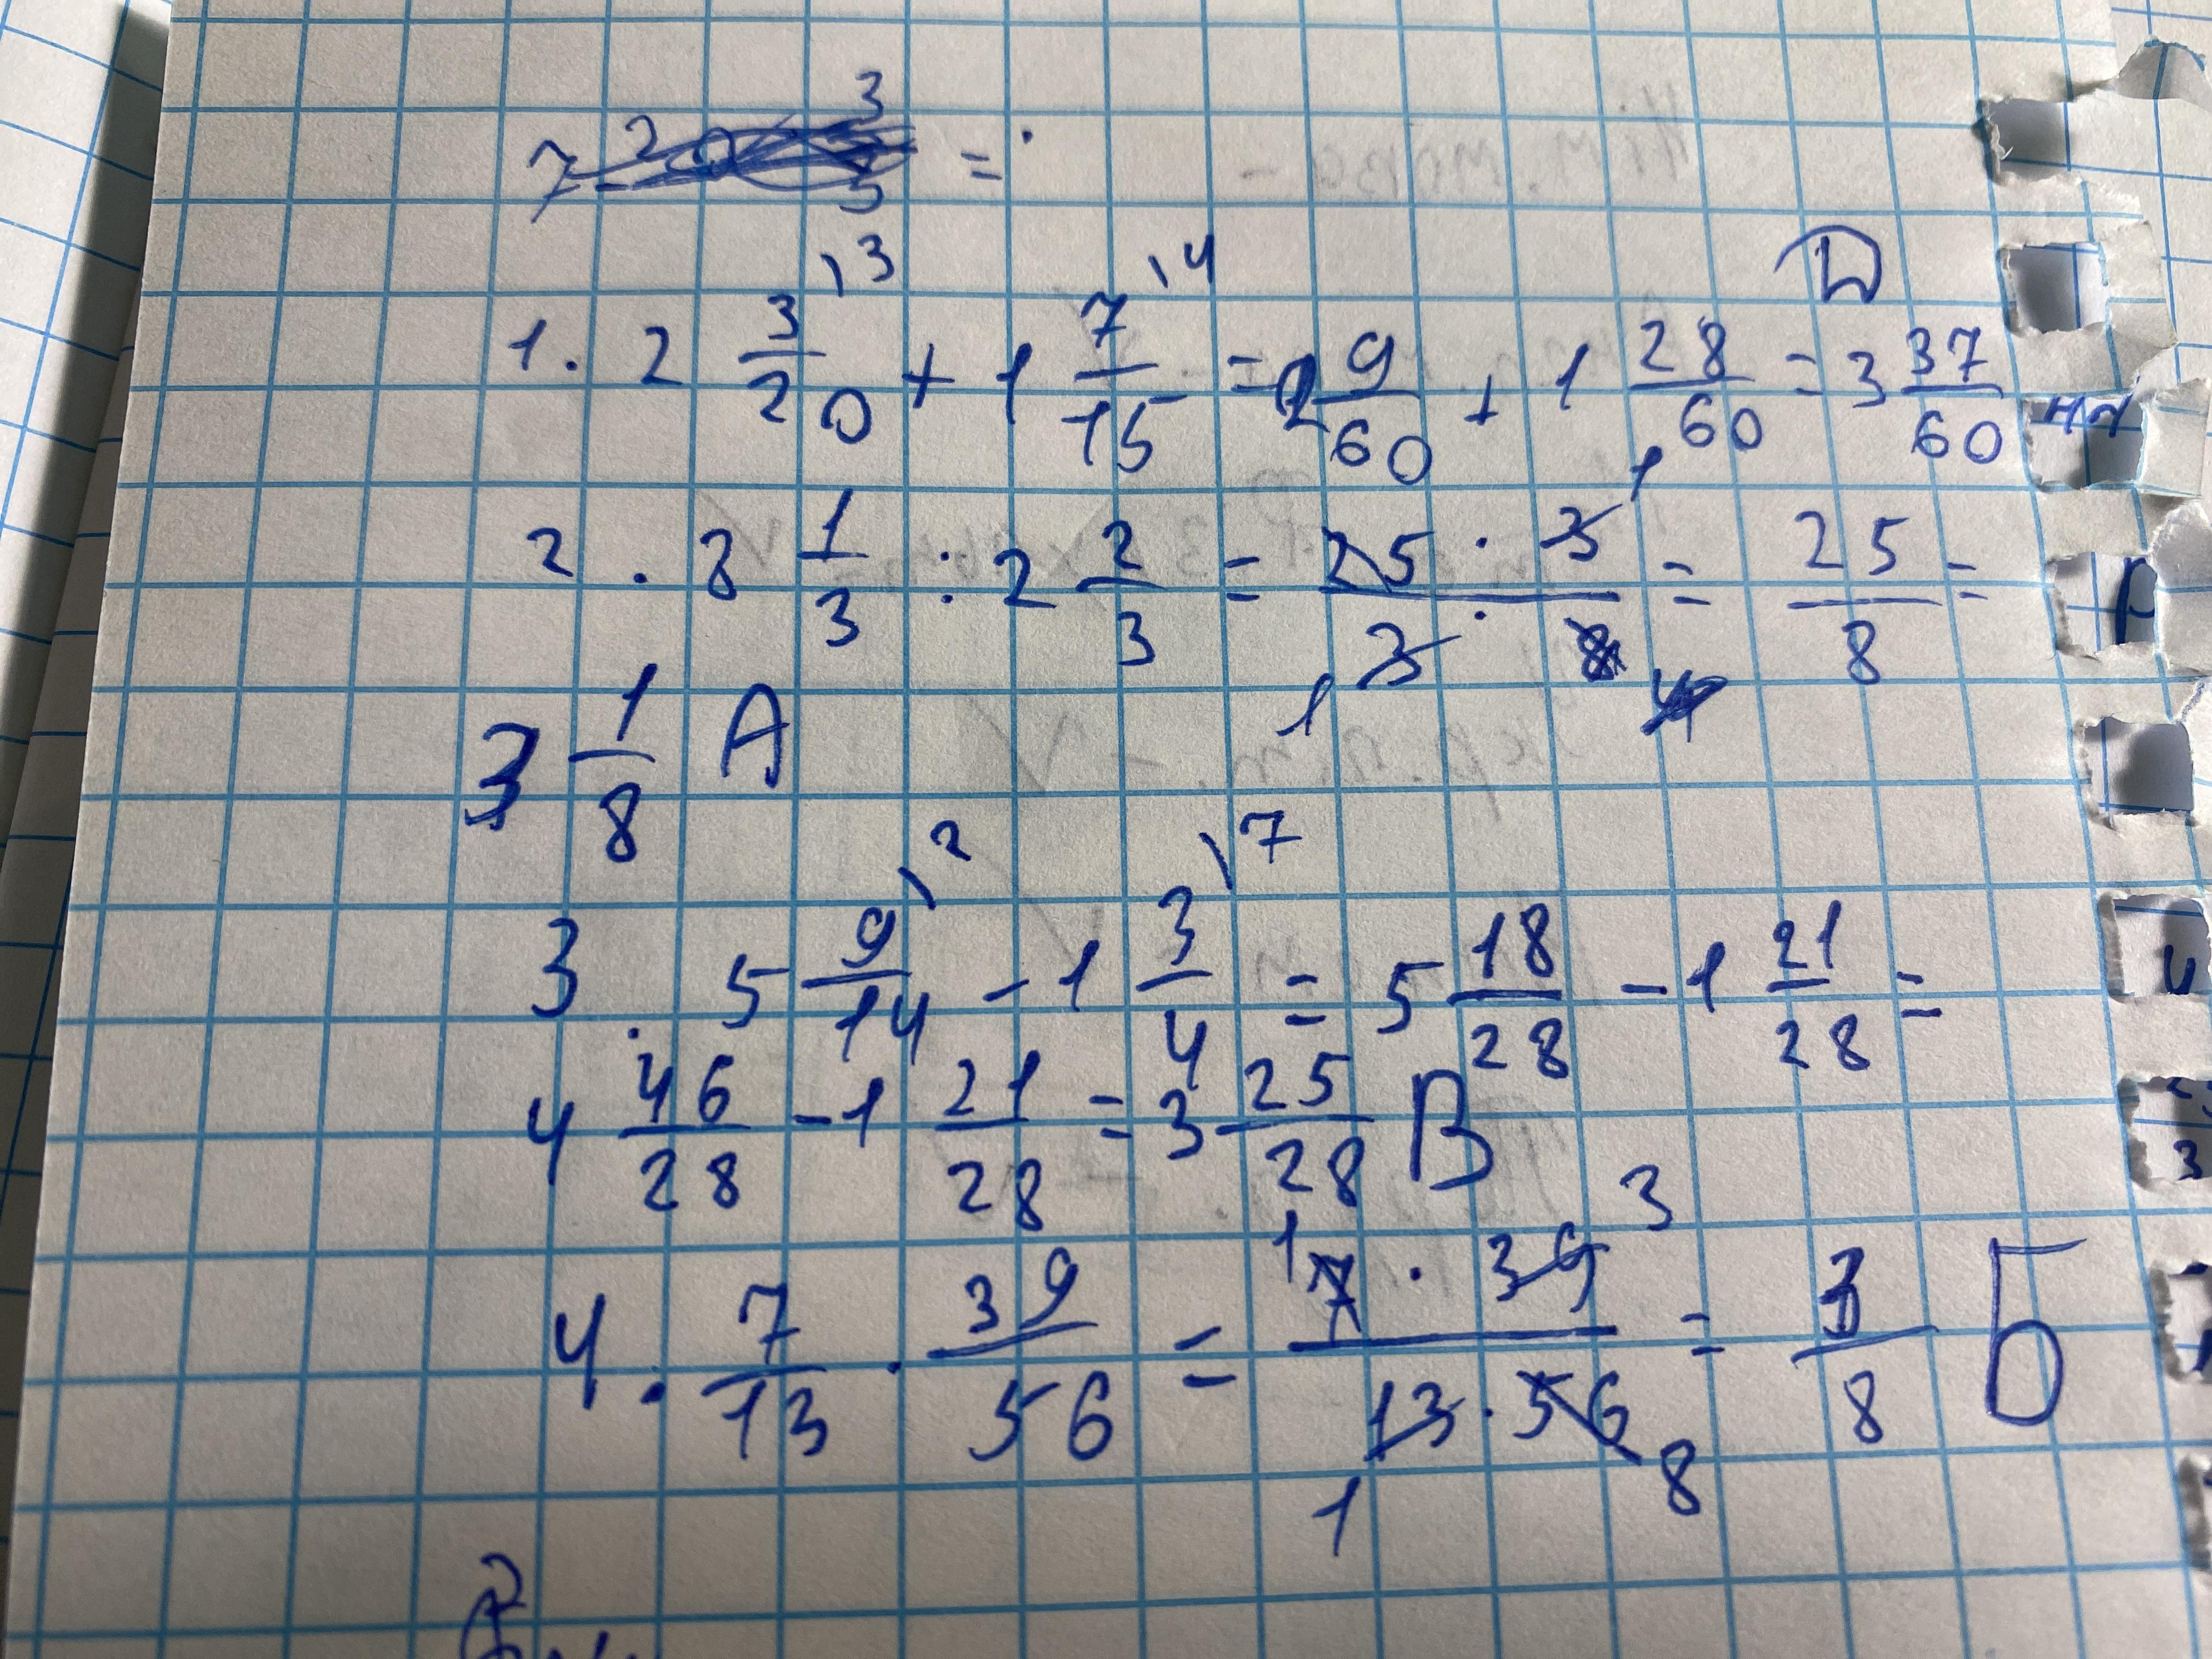 7 =
1. 2 3/20 \3 + 1 7/15 \4 = 2 9/60 + 1 28/60 = 3 37/60 D
2. 8 1/3 : 2 2/3 = 25 · 3 / 3 · 8 = 25/8 =
3 1/8 A
3. 5 9/14 \2 - 1 3/4 \7 = 5 18/28 - 1 21/28 =
4 46/28 - 1 21/28 = 3 25/28 В
4. 7/13 · 39/56 = 7 · 39 / 13 · 56 = 3/8 Б